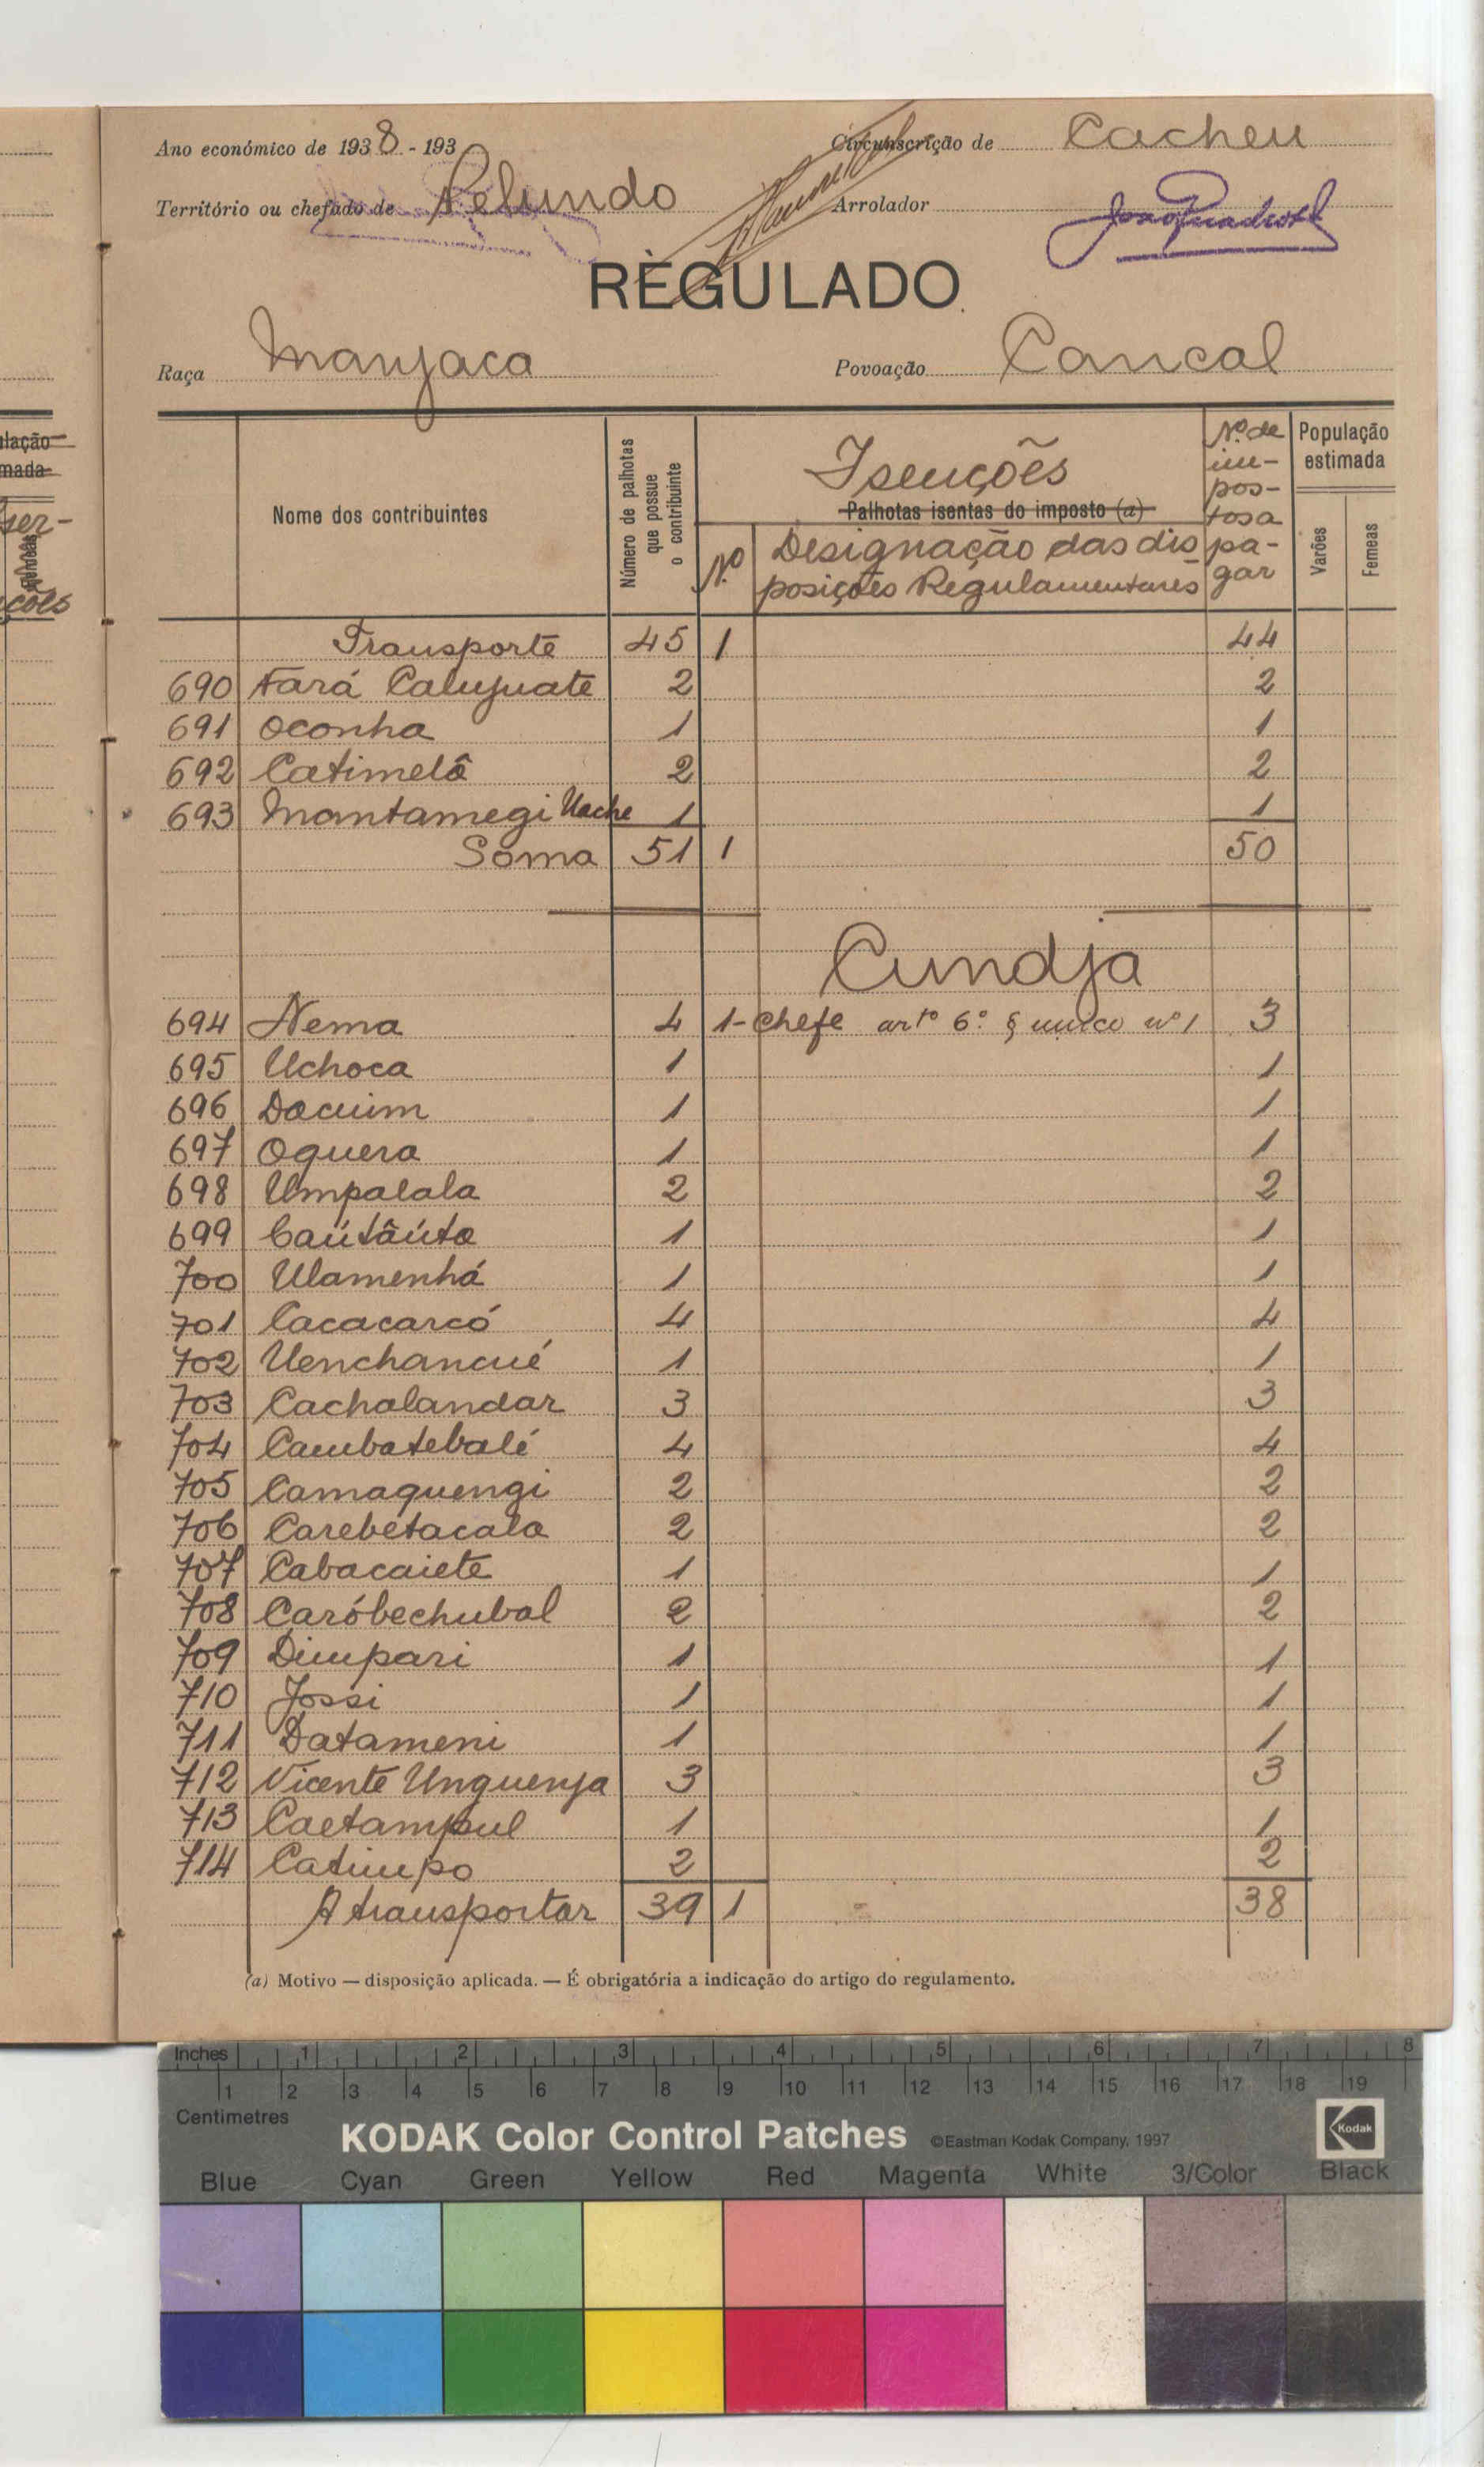 Ano económico de 1938 - 193
Circunscrição de Cacheu
Território ou chefado de Pelundo
Arrolador
REGULADO
Raça Manjaca
Povoação Cancal
Nome dos contribuintes
Número de palhotas que possue o contribuinte
Isenções
Palhotas isentas do imposto (a)
Nº
Designação das disposições Regulamentares
Nº de impostos a pagar
População estimada
Varões
Femeas
Transporte 45 1 44
690 Fará Calujuate 2 2
691 Oconha 1 1
692 Catimelô 2 2
693 Mantamegi Uache 1 1
Soma 51 1 50
Cundja
694 Nema 4 1-Chefe artº 6º § unico nº 1 3
695 Uchoca 1 1
696 Dacuim 1 1
697 Oguera 1 1
698 Umpalala 2 2
699 Caútâúta 1 1
700 Ulamenhá 1 1
701 Cacacarcó 4 4
702 Uenchancué 1 1
703 Cachalandar 3 3
704 Cambatebalé 4 4
705 Camaquengi 2 2
706 Carebetacala 2 2
707 Cabacaiete 1 1
708 Caróbechubal 2 2
709 Dimpari 1 1
710 Jossi 1 1
711 Datameni 1 1
712 Vicente Unguenja 3 3
713 Caetampul 1 1
714 Catimpo 2 2
A transportar 39 1 38
(a) Motivo — disposição aplicada. — É obrigatória a indicação do artigo do regulamento.
Inches 1 2 3 4 5 6 7 8
1 2 3 4 5 6 7 8 9 10 11 12 13 14 15 16 17 18 19
Centimetres
KODAK Color Control Patches ©Eastman Kodak Company, 1997 Kodak
Blue Cyan Green Yellow Red Magenta White 3/Color Black